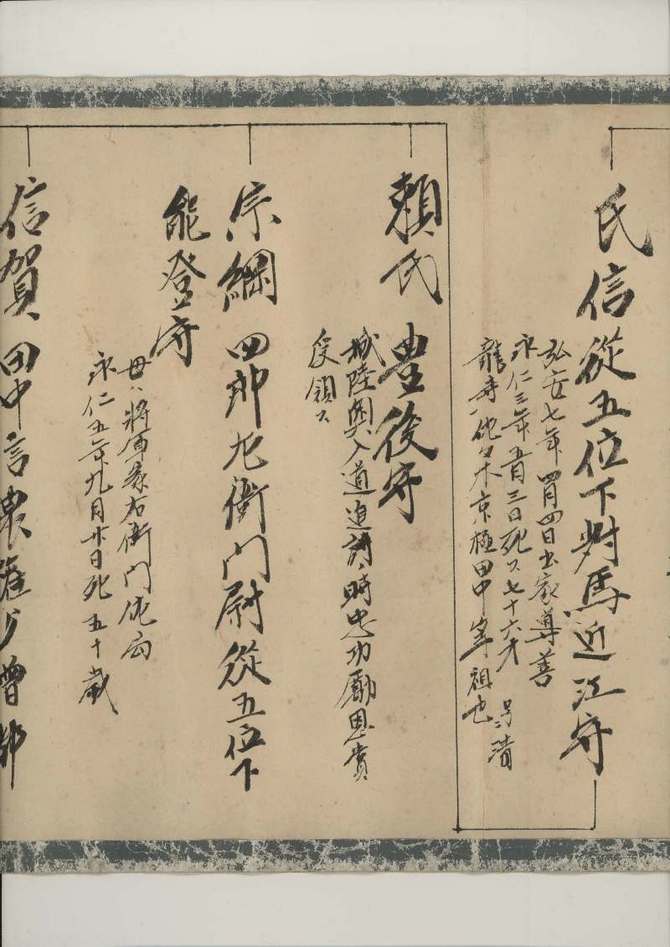 氏信從五位下對馬近江守
弘安七年四月四日出家尊善
永仁三年五月三日死ス七十六才 号清
龍寺佐々木京極田中等祖也
頼氏 豊後守
城陸奥入道追討時忠功勵恩賞
受領ス
宗綱 四郎左衛門尉從五位下
能登守
母ハ将軍家右衛門佐局
永仁五年九月廿日死 五十歳
信賀 田中言泉 少僧都